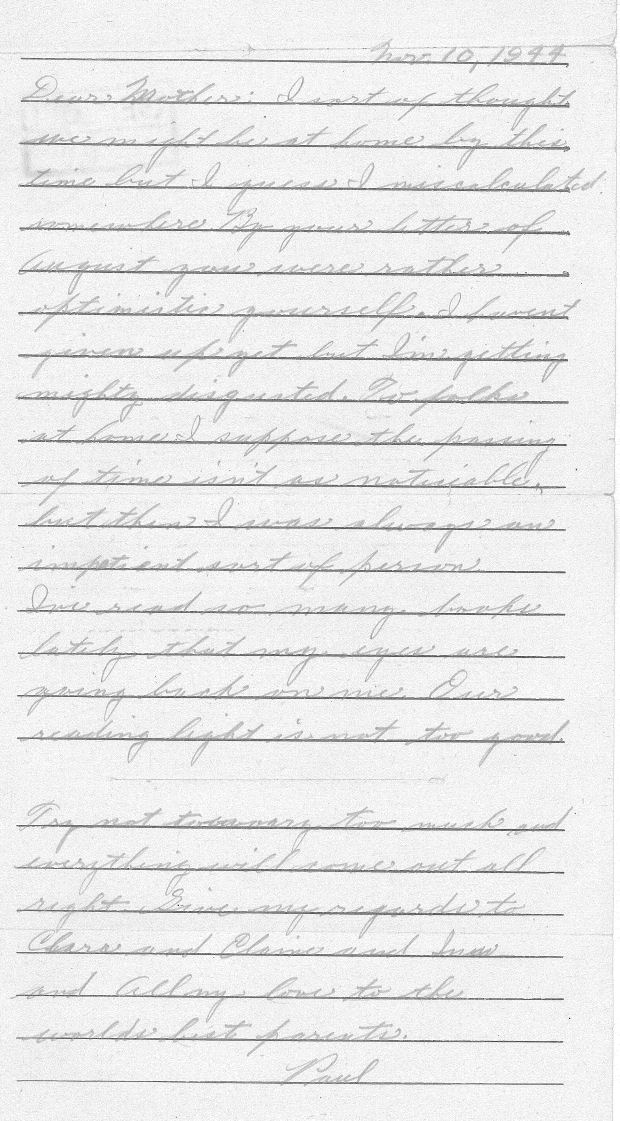 Nov. 10, 1944
Dear Mother: I sort of thought
we might be at home by this
time but I guess I miscalculated
somewhere By your letter of
August you were rather
optimistic yourself. I havent
given up yet but I'm getting
mighty disgusted. To folks
at home I suppose the passing
of time isn't as noticiable,
but then I was always an
impatient sort of person.
I've read so many books
lately that my eyes are
going back on me. Our
reading light is not too good.
Try not to worry too much and
everything will come out all
right. Give my regards to
Clara and Elaine and Inez
and all my love to the
worlds best parents.
Paul